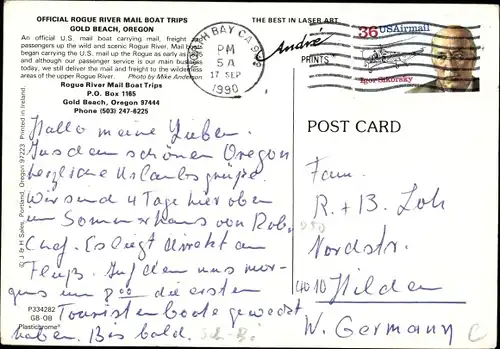 OFFICIAL ROGUE RIVER MAIL BOAT TRIPS
GOLD BEACH, OREGON
An official U.S. mail boat carrying mail, freight
passengers up the wild and scenic Rogue River. Mail boats
began carrying the U.S. mail up the Rogue as early as
and although our passenger service is our main business
today, we still deliver the mail and freight to the wilderness
areas of the upper Rogue River. Photo by Mike Anderson
Rogue River Mail Boat Trips
P.O. Box 1165
Gold Beach, Oregon 97444
Phone (503) 247-6225
THE BEST IN LASER ART
André
PRINTS
BAY CA
PM
5A
17 SEP
1990
36 USAirmail
Igor Sikorsky
POST CARD
Hallo meine Lieben.
Aus dem schönen Oregon
herzliche Urlaubsgrüße.
Wir sind 4 Tage hier oben
im Sommerhaus von Rob.
Chef. Es liegt direkt am
Fluß. Auf dem uns mor-
gens um 8.00 die ersten
Touristenboote geweckt
haben. Bis bald.
Fam.
R. + B. Loh
Nordstr.
4010 Hilden
W. Germany
© J & H Sales, Portland, Oregon 97223 Printed in Ireland.
P334282
GB-OB
Plastichrome®